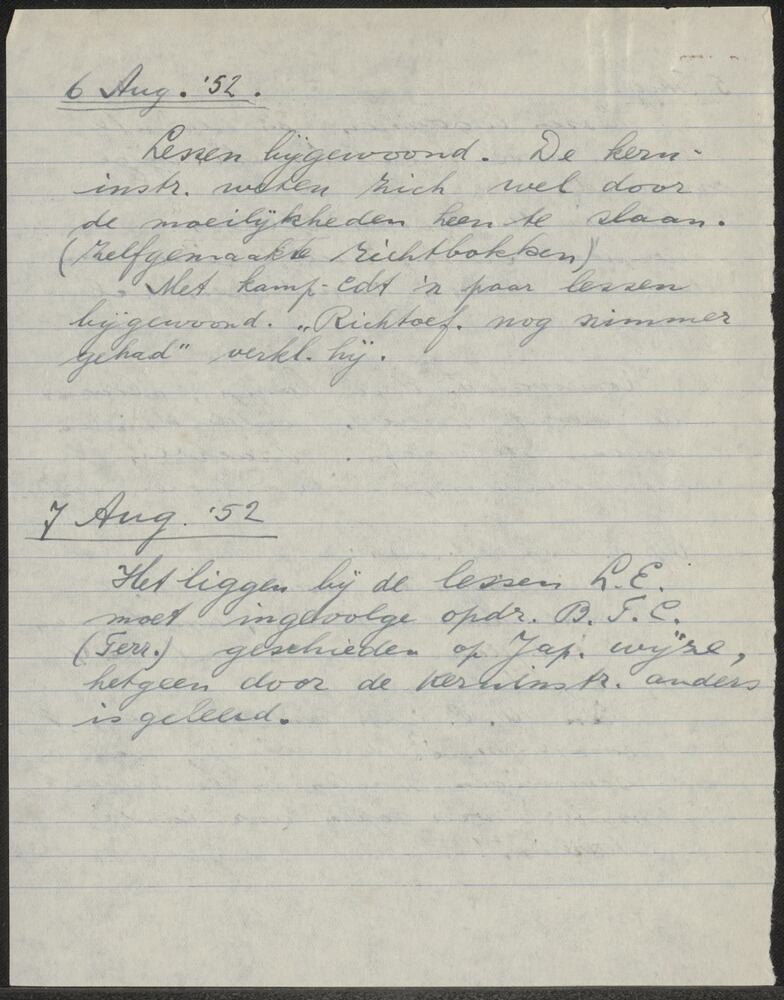 6 Aug. '52.
Lessen bijgewoond. De kern-
instr. weten zich wel door
de moeilijkheden heen te slaan.
(Zelfgemaakte richtbokken)
Met kamp-Cdt 'n paar lessen
bijgewoond. „Richtoef. nog nimmer
gehad" verkl. hij.
7 Aug. '52
Het liggen bij de lessen L.E.
moet ingevolge opdr. B.T.C.
(Terr.) geschieden op Jap. wijze,
hetgeen door de kerninstr. anders
is geleerd.